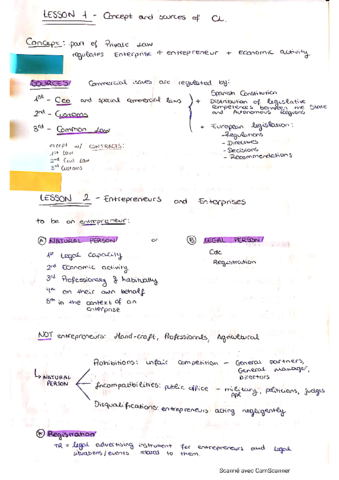 LESSON 1 - Concept and sources of CL.
Concept: part of Private Law
regulates Enterprise + entrepreneur + economic activity
SOURCES Commercial issues are regulated by:
1st - Cco and special commercial laws
2nd - Customs
3rd - Common Law
except w/ CONTRACTS:
1st Law
2nd Civil Law
3rd Customs
+ Spanish Constitution
Distribution of legislative
competences between the State
and Autonomous Regions
+ European legislation:
- Regulations
- Directives
- Decisions
- Recommendations
LESSON 2 - Entrepreneurs and Enterprises
to be an entrepreneur:
A NATURAL PERSON or B LEGAL PERSON
1st Legal Capacity
2nd Economic activity
3rd Professionally & habitually
4th on their own behalf
5th in the context of an
enterprise
Cdc
Registration
NOT entrepreneurs: Hand-craft, Professionals, Agricultural
↳ NATURAL
PERSON
Prohibitions: unfair competition - General partners,
General manager,
Directors
Incompatibilities: public office - military, politicians, judges
Disqualifications: entrepreneurs acting negligently.
Registration
= legal advertising instrument for entrepreneurs and legal
situations/events related to them.
Scanné avec CamScanner